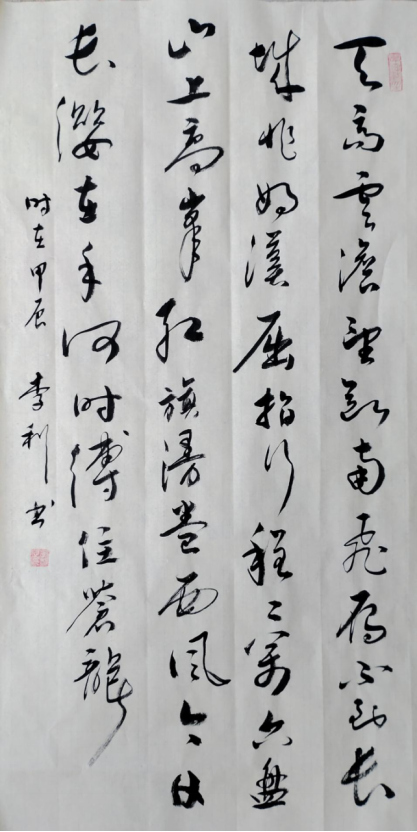 天高雲澹望断南飛雁不到长
城非好漢屈指行程二萬六盤
山上高峯红旗漫卷西風今日
长纓在手何时縛住蒼龍
时在甲辰 李利书